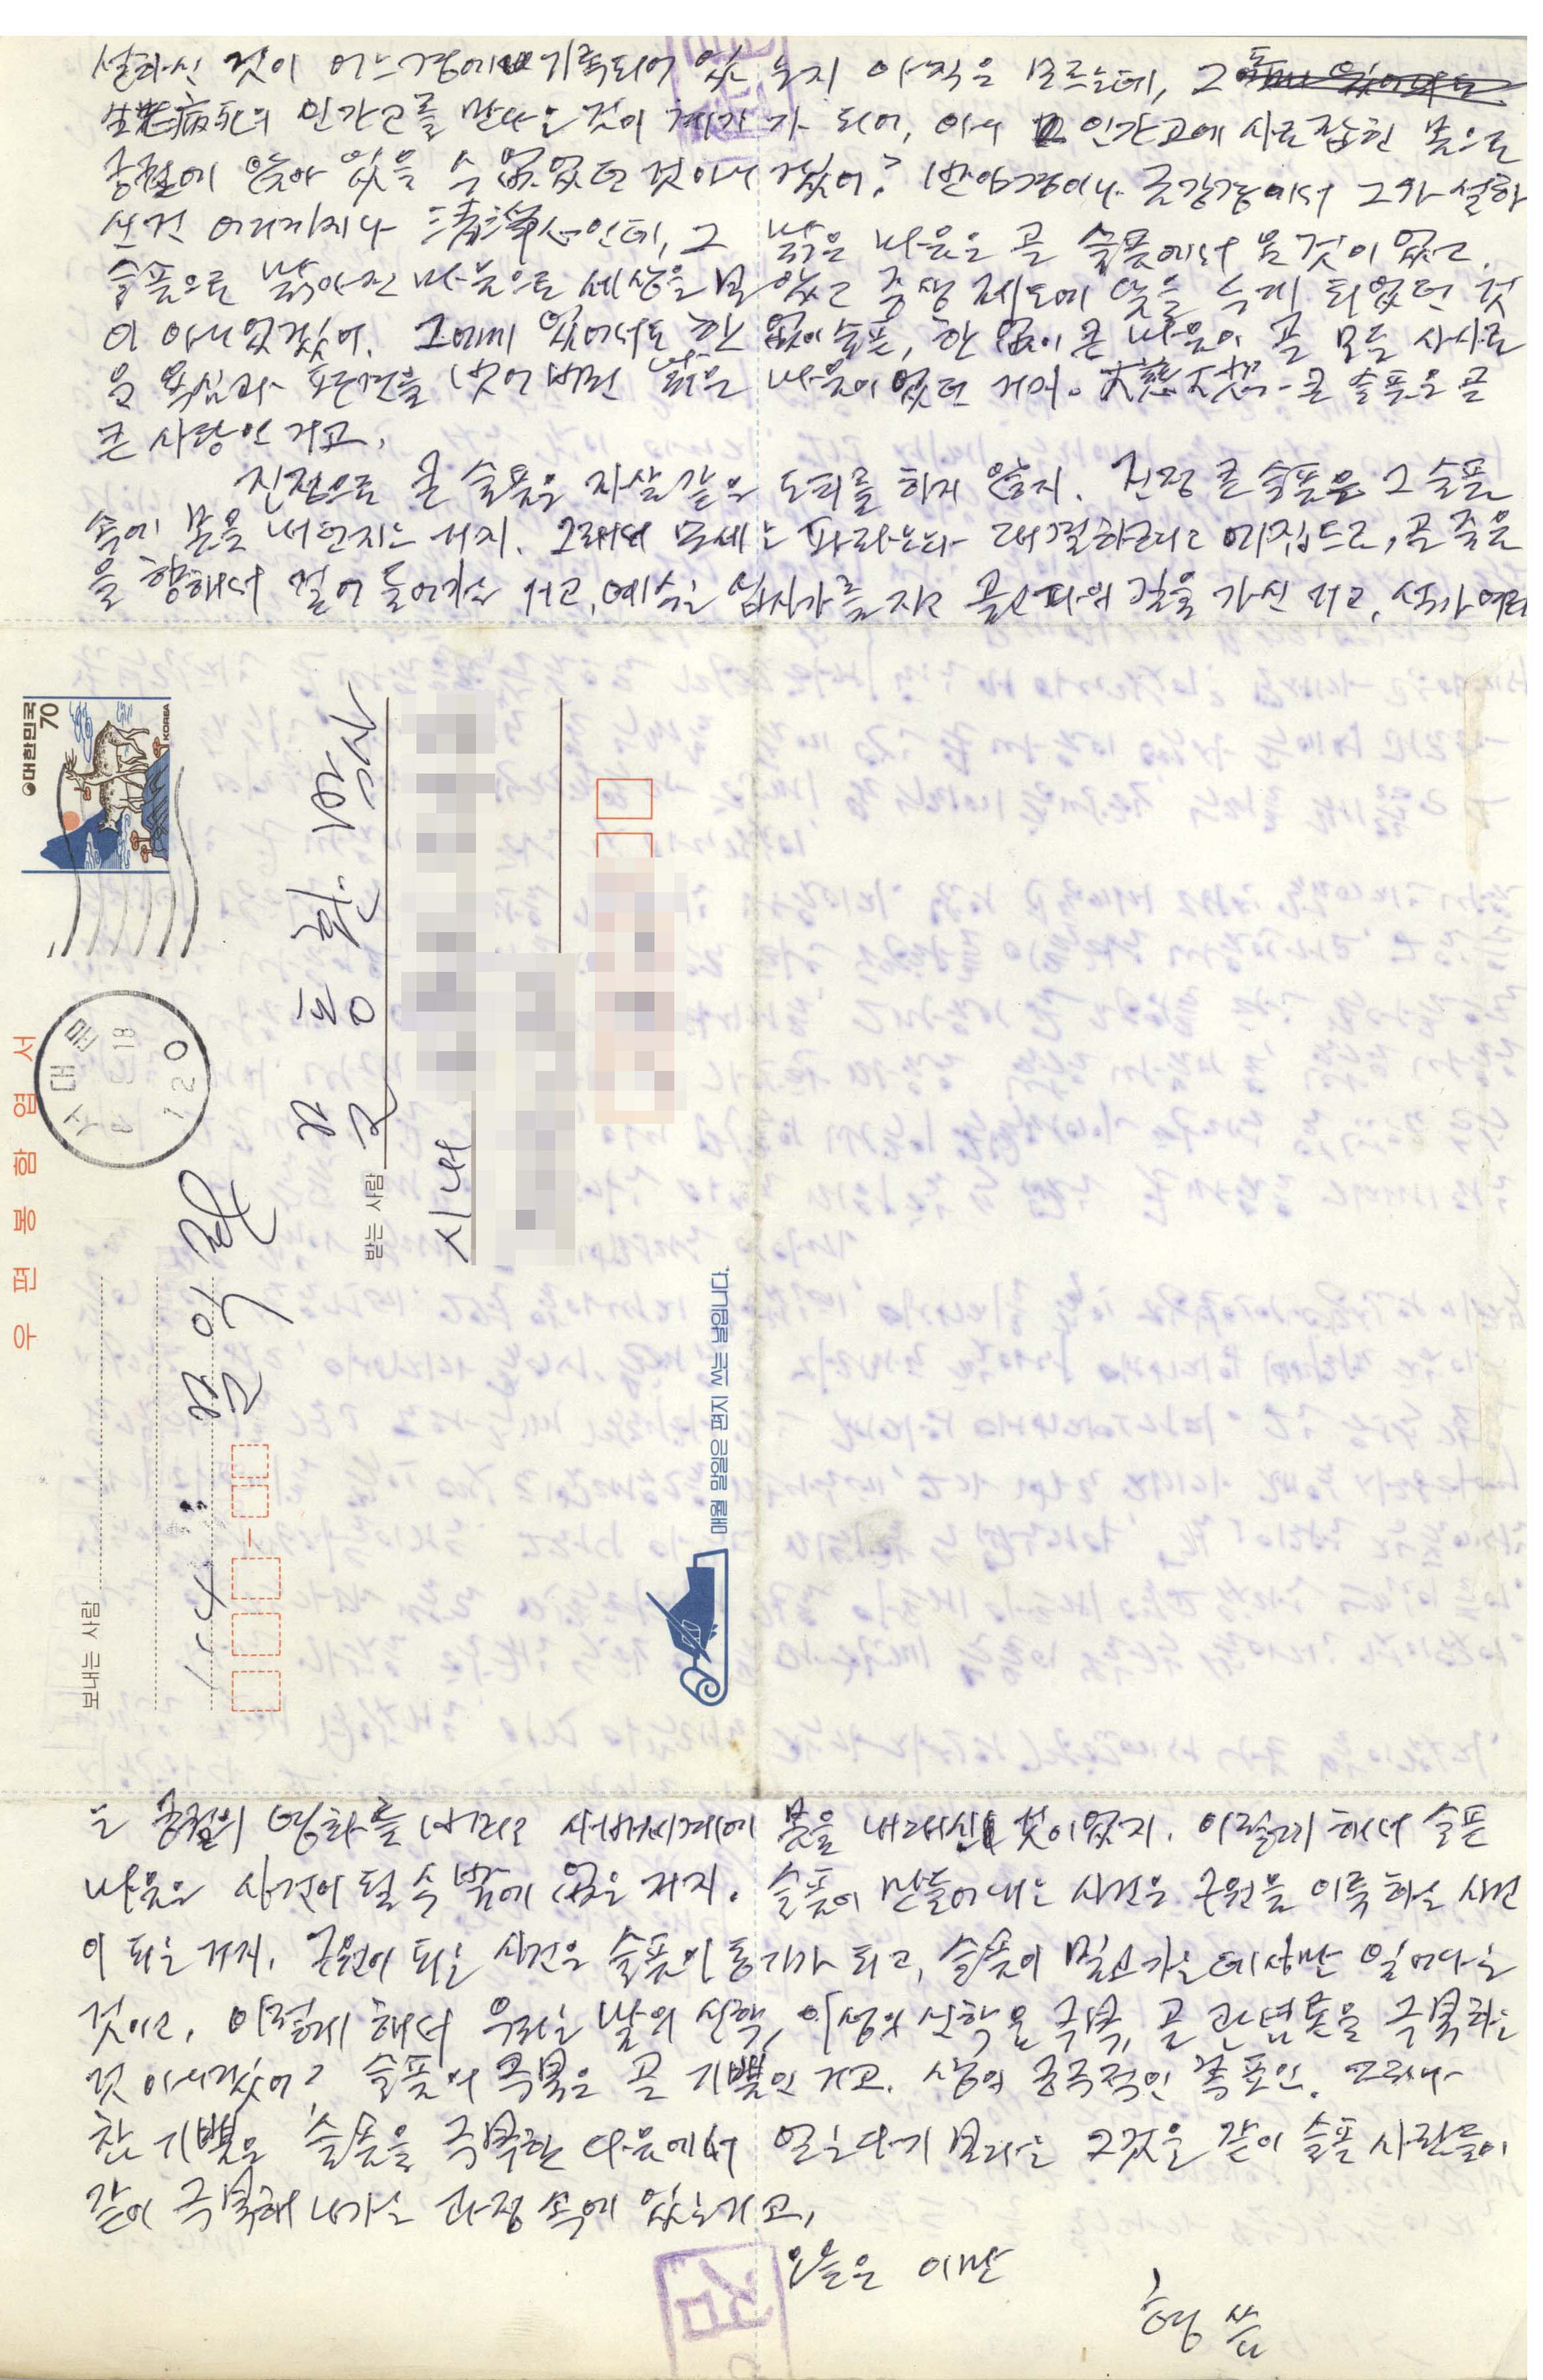 설하신 것이 어느 경에 기록되어 있는지 아직은 모르는데, 그
生老病死의 인간고를 말하는 것이 계기가 되어, 아니 인간고에 사로잡힌 몸으로
궁전에 앉아 있을 수 없었던 것 아니겠어? 반야경이나 금강경에서 그가 설하
신 건 어디까지나 清淨心인데, 그 맑은 마음은 곧 슬픔에서 온 것이었고,
슬픔으로 맑아진 마음으로 세상을 볼 수 있었고 중생 제도에 나서게 되었던 것
이 아니었겠어. 그에게 있어서도 한없이 슬픈, 한없이 큰 마음이 곧 모든 사사로
운 욕심과 편견을 벗어버린 맑은 마음이었던 거야. 大慈大悲- 큰 슬픔은 곧
큰 사랑인 거고.
진정으로 큰 슬픔은 자살 같은 도피를 하지 않지. 진정 큰 슬픔은 그 슬픔
속에 몸을 내던지는 거지. 그래서 모세는 파라오와 대결하려고 에집트로, 곧 죽음
을 향해서 걸어 들어가는 거고, 예수는 십자가를 지고 골고다의 길을 가신 거고, 석가여래
대한민국
70
KOREA
우편봉함엽서
서대문
18
120
보내는 사람
문익환
받는 사람
시내
매월 말일은 편지 쓰는 날입니다.
는 궁궐의 영화를 버리고 사바세계에 몸을 내대신 것이었지. 이렇게 해서 슬픈
마음은 사건이 될 수밖에 없는 거지. 슬픔이 만들어내는 사건은 구원을 이룩하는 사건
이 되는 거지. 구원이 되는 사건은 슬픔이 동기가 되고, 슬픔이 밀고 가는 데서만 일어나는
것이고. 이렇게 해서 우리는 말의 신학, 이성의 신학을 극복, 곧 관념론을 극복하는
것 아니겠어? 슬픔의 극복은 곧 기쁨인 거고. 삶의 궁극적인 목표인. 그러나
참 기쁨은 슬픔을 극복한 다음에 온다기보다는 그것을 같이 슬픈 사람들이
같이 극복해 나가는 과정 속에 있는 거고,
오늘은 이만
형 씀